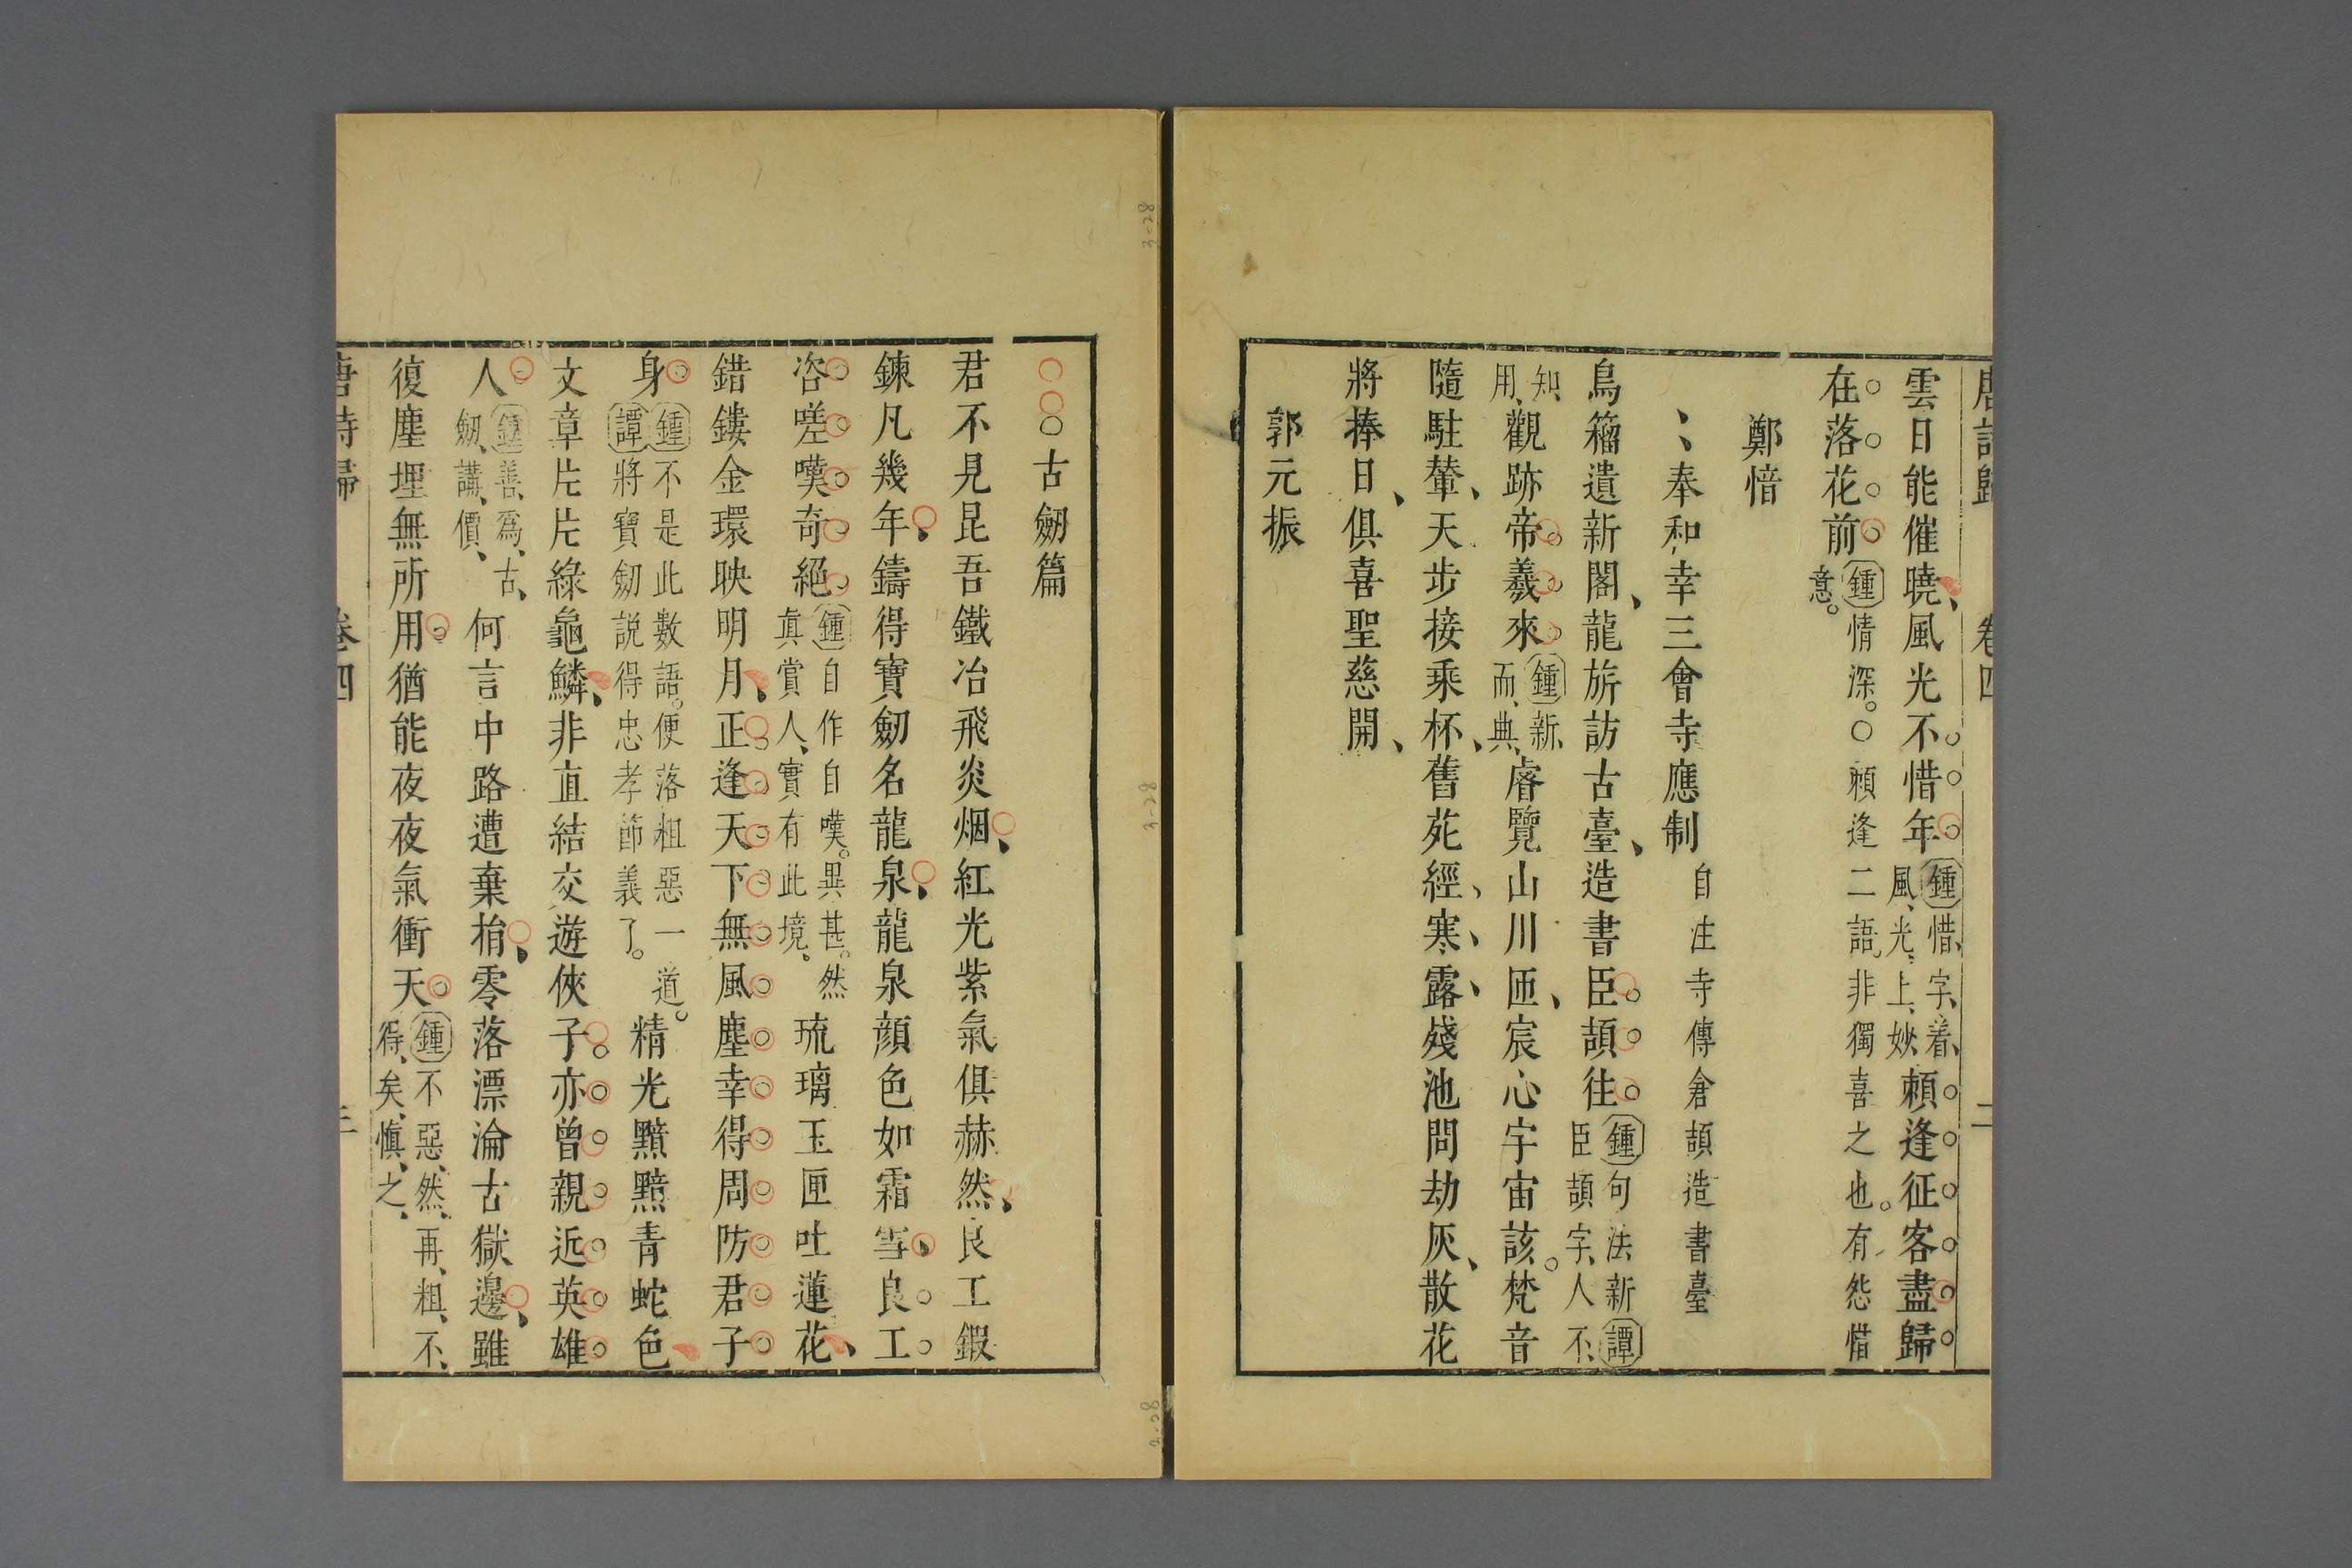 唐詩歸 卷四 二
雲日能催曉風光不惜年鍾惜字着風光上妙頼逢征客盡歸
在落花前鍾情深。○頼逢二語非獨喜之也。有怨惜意。
鄭愔
奉和幸三會寺應制自注寺傳倉頡造書臺
鳥籀遺新閣龍旂訪古臺造書臣頡往鍾句法新譚臣頡字人不
知用觀跡帝羲來鍾新而典睿覽山川匝宸心宇宙該。梵音
隨駐輦天步接乘杯舊苑經寒露殘池問劫灰散花
將捧日俱喜聖慈開
郭元振
○○○古劒篇
君不見昆吾鐵冶飛炎烟紅光紫氣俱赫然良工鍜
鍊凡幾年鑄得寶劒名龍泉龍泉顔色如霜雪良工
咨嗟嘆奇絕鍾自作自嘆。異甚。然真賞人實有此境。琉璃玉匣吐蓮花
錯鏤金環映明月正逢天下無風塵幸得周防君子
身鍾不是此數語。便落粗惡一道。譚將寶劒説得忠孝節義了。精光黯黯青蛇色
文章片片綠龜鱗非直結交遊俠子亦曾親近英雄
人鍾善爲古劒講價何言中路遭棄捐零落漂淪古獄邊雖
復塵埋無所用猶能夜夜氣衝天鍾不惡然再粗不得矣愼之
唐詩歸 卷四 三
3-28
3-28
3-28